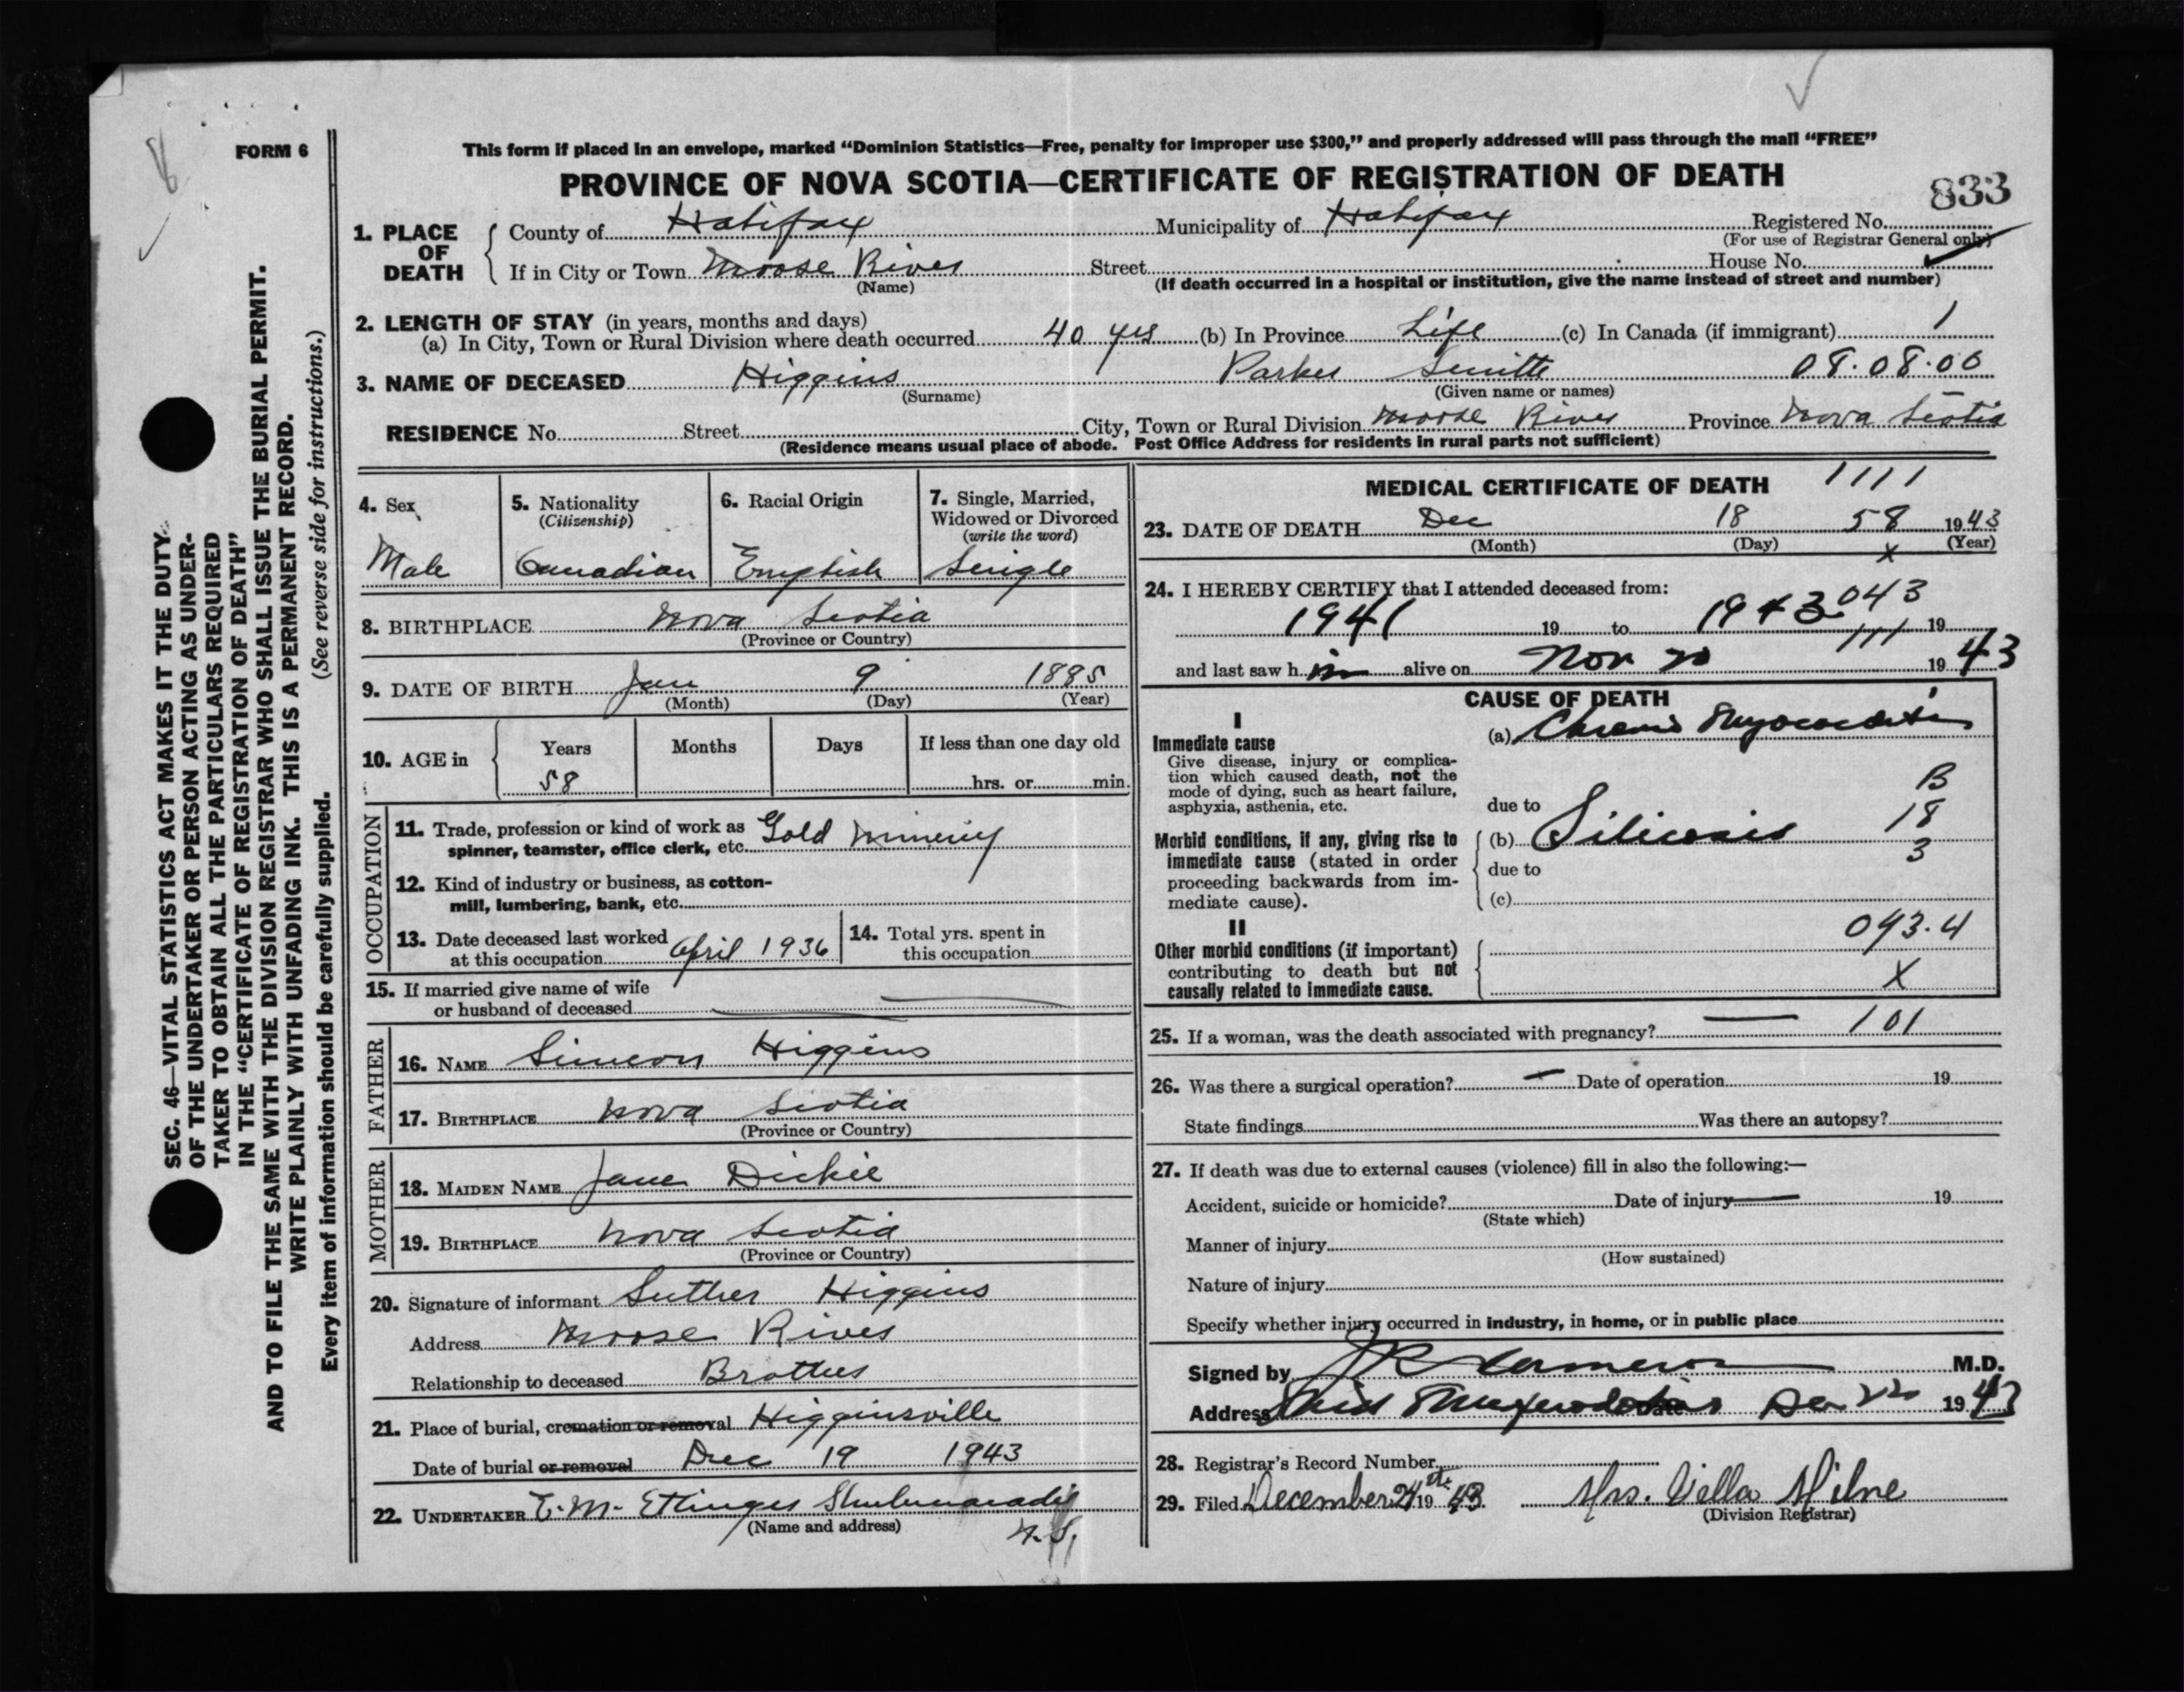 FORM 6
This form if placed in an envelope, marked “Dominion Statistics—Free, penalty for improper use $300,” and properly addressed will pass through the mail “FREE”
PROVINCE OF NOVA SCOTIA—CERTIFICATE OF REGISTRATION OF DEATH
833
1. PLACE OF DEATH
County of Halifax Municipality of Halifax Registered No.
(For use of Registrar General only)
If in City or Town Moose River Street House No.
(Name) (If death occurred in a hospital or institution, give the name instead of street and number)
2. LENGTH OF STAY (in years, months and days)
(a) In City, Town or Rural Division where death occurred 40 yrs (b) In Province Life (c) In Canada (if immigrant) 1
3. NAME OF DECEASED Higgins Parker 08.08.00
(Surname) (Given name or names)
RESIDENCE No. Street City, Town or Rural Division Moose River Province Nova Scotia
(Residence means usual place of abode. Post Office Address for residents in rural parts not sufficient)
4. Sex
Male
5. Nationality
(Citizenship)
Canadian
6. Racial Origin
English
7. Single, Married,
Widowed or Divorced
(write the word)
Single
8. BIRTHPLACE Nova Scotia
(Province or Country)
9. DATE OF BIRTH Jan 9 1885
(Month) (Day) (Year)
10. AGE in
Years Months Days If less than one day old
58 hrs. or min.
OCCUPATION
11. Trade, profession or kind of work as Gold mining
spinner, teamster, office clerk, etc.
12. Kind of industry or business, as cotton-
mill, lumbering, bank, etc.
13. Date deceased last worked
at this occupation April 1936
14. Total yrs. spent in
this occupation
15. If married give name of wife
or husband of deceased
FATHER
16. NAME Simeon Higgins
17. BIRTHPLACE Nova Scotia
(Province or Country)
MOTHER
18. MAIDEN NAME Jane Dickie
19. BIRTHPLACE Nova Scotia
(Province or Country)
20. Signature of informant Luther Higgins
Address Moose River
Relationship to deceased Brother
21. Place of burial, cremation or removal Higginsville
Date of burial or removal Dec 19 1943
22. UNDERTAKER E. M. Ettinger Shubenacadie
(Name and address) N.S.
MEDICAL CERTIFICATE OF DEATH 1111
23. DATE OF DEATH Dec 18 58 1943
(Month) (Day) x (Year)
24. I HEREBY CERTIFY that I attended deceased from:
043
1941 19 to 1943 19
111
and last saw h im alive on Nov 20 1943
CAUSE OF DEATH
I
Immediate cause
Give disease, injury or complica-
tion which caused death, not the
mode of dying, such as heart failure,
asphyxia, asthenia, etc.
(a) Chronic Myocarditis
due to
B
18
3
Morbid conditions, if any, giving rise to
immediate cause (stated in order
proceeding backwards from im-
mediate cause).
(b) Silicosis
due to
(c)
II
Other morbid conditions (if important)
contributing to death but not
causally related to immediate cause.
093.4
X
25. If a woman, was the death associated with pregnancy? 101
26. Was there a surgical operation? — Date of operation 19
State findings Was there an autopsy?
27. If death was due to external causes (violence) fill in also the following:—
Accident, suicide or homicide? Date of injury 19
(State which)
Manner of injury
(How sustained)
Nature of injury
Specify whether injury occurred in industry, in home, or in public place
Signed by M.D.
Address Mid Musquodoboit Date Dec 22 1943
28. Registrar's Record Number
29. Filed December 24th 1943 Mrs. Villa Milne
(Division Registrar)
SEC. 46—VITAL STATISTICS ACT MAKES IT THE DUTY
OF THE UNDERTAKER OR PERSON ACTING AS UNDER-
TAKER TO OBTAIN ALL THE PARTICULARS REQUIRED
IN THE “CERTIFICATE OF REGISTRATION OF DEATH”
AND TO FILE THE SAME WITH THE DIVISION REGISTRAR WHO SHALL ISSUE THE BURIAL PERMIT.
WRITE PLAINLY WITH UNFADING INK. THIS IS A PERMANENT RECORD.
Every item of information should be carefully supplied. (See reverse side for instructions.)